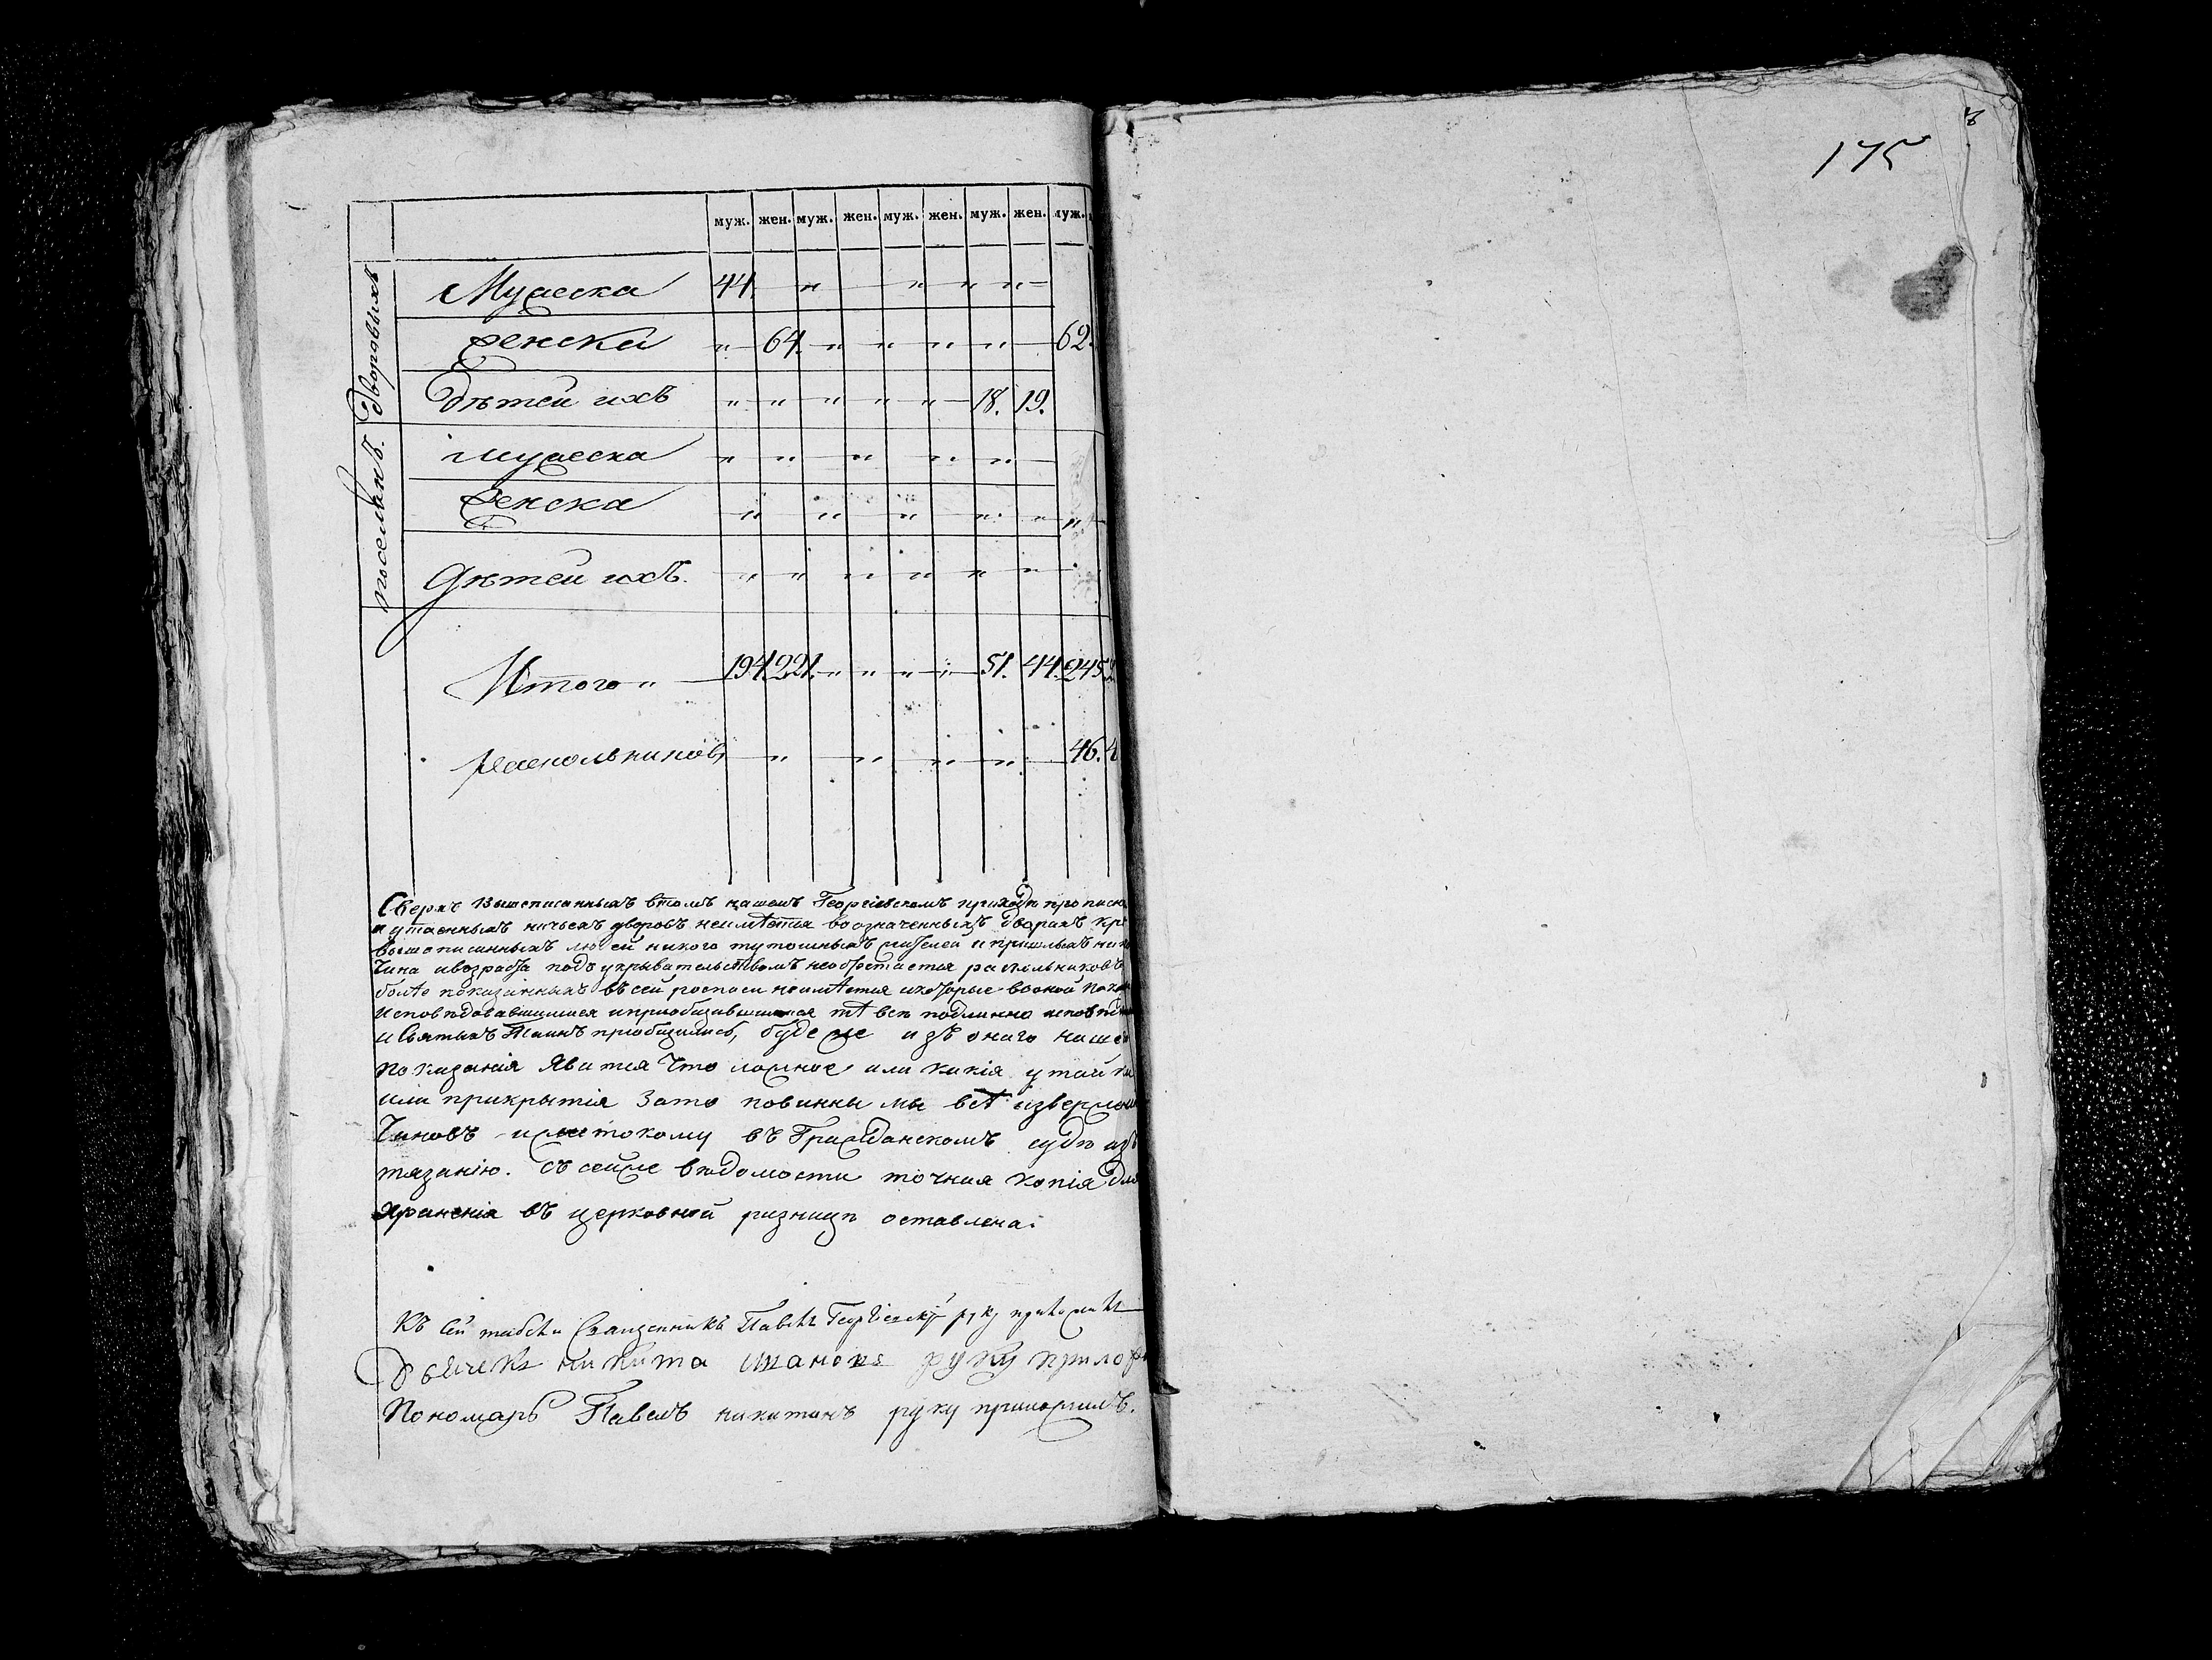 175
муж. жен. муж. жен. муж. жен. муж. жен. муж.
Дворовыхъ
Мужеска 44. " " " "
Женски " 64. " " " " 62.
Дѣтей ихъ " " " " " 18. 19.
поселянъ.
мужеска " " " " "
Женска " " " " " "
Дѣтей ихъ. " " " " " "
Итого " 194. 221. " " " " 51. 44. 245.
раскольниковъ " " " " 46.
Сверхъ вышеписанныхъ втомъ нашемъ Георгіевскомъ приходѣ прописн
и утаенныхъ ничьихъ дворовъ неимѣется воозначенныхъ дворахъ кр
вышеписанныхъ людей никого тутошныхъ жителей и пришлыхъ ник
Чина ивозраста подъ укрывательствомъ необретается раскольниковъ
болѣе показанныхъ въ сей росписи неимѣется икоторые вооной пока
исповѣдовавшимися иприобщившимися тѣ всѣ подлинно исповѣд
и Святыхъ Таинъ приобщились, буде же изъ онаго наше
показанія явится что ложное или какія утайк
или прикрытія Зато повинны мы всѣ изверже
Чиновъ и жестокому въ Гражданскомъ судѣ из
тязанію. Съ сейже вѣдомости точная копія для
храненія въ церковной ризницѣ оставлена.
Къ сей табели Священникъ Павелъ Георгіевскій руку приложилъ
Дьячекъ никита ивановъ руку прилож
Пономарь Павелъ никитинъ руку приложилъ.